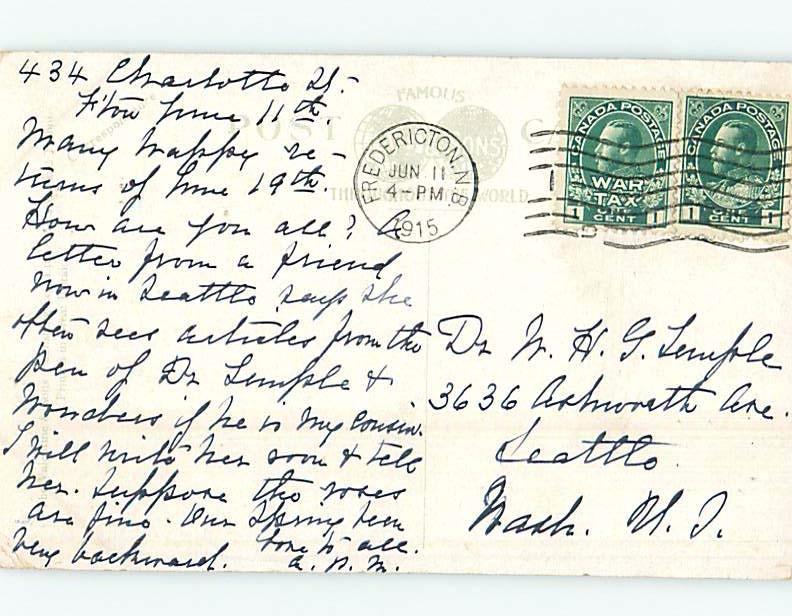 434 Charlotte St.
F'ton June 11th.
Many happy re-
turns of June 19th.
How are you all? A
letter from a friend
now in Seattle says she
often sees articles from the
pen of Dr Temple &
wonders if he is my cousin.
I will write her soon & tell
her. Suppose the roses
are fine. Our Spring been
very backward. Love to all.
A. D. M.
POST
FAMOUS
THROUGHOUT THE WORLD
FREDERICTON·N.B.
JUN 11
4-PM
1915
CANADA POSTAGE
WAR
TAX
1 CENT 1
CANADA POSTAGE
1 CENT 1
Dr W. H. G. Temple
3636 Ashworth Ave.
Seattle.
Wash. U. S.